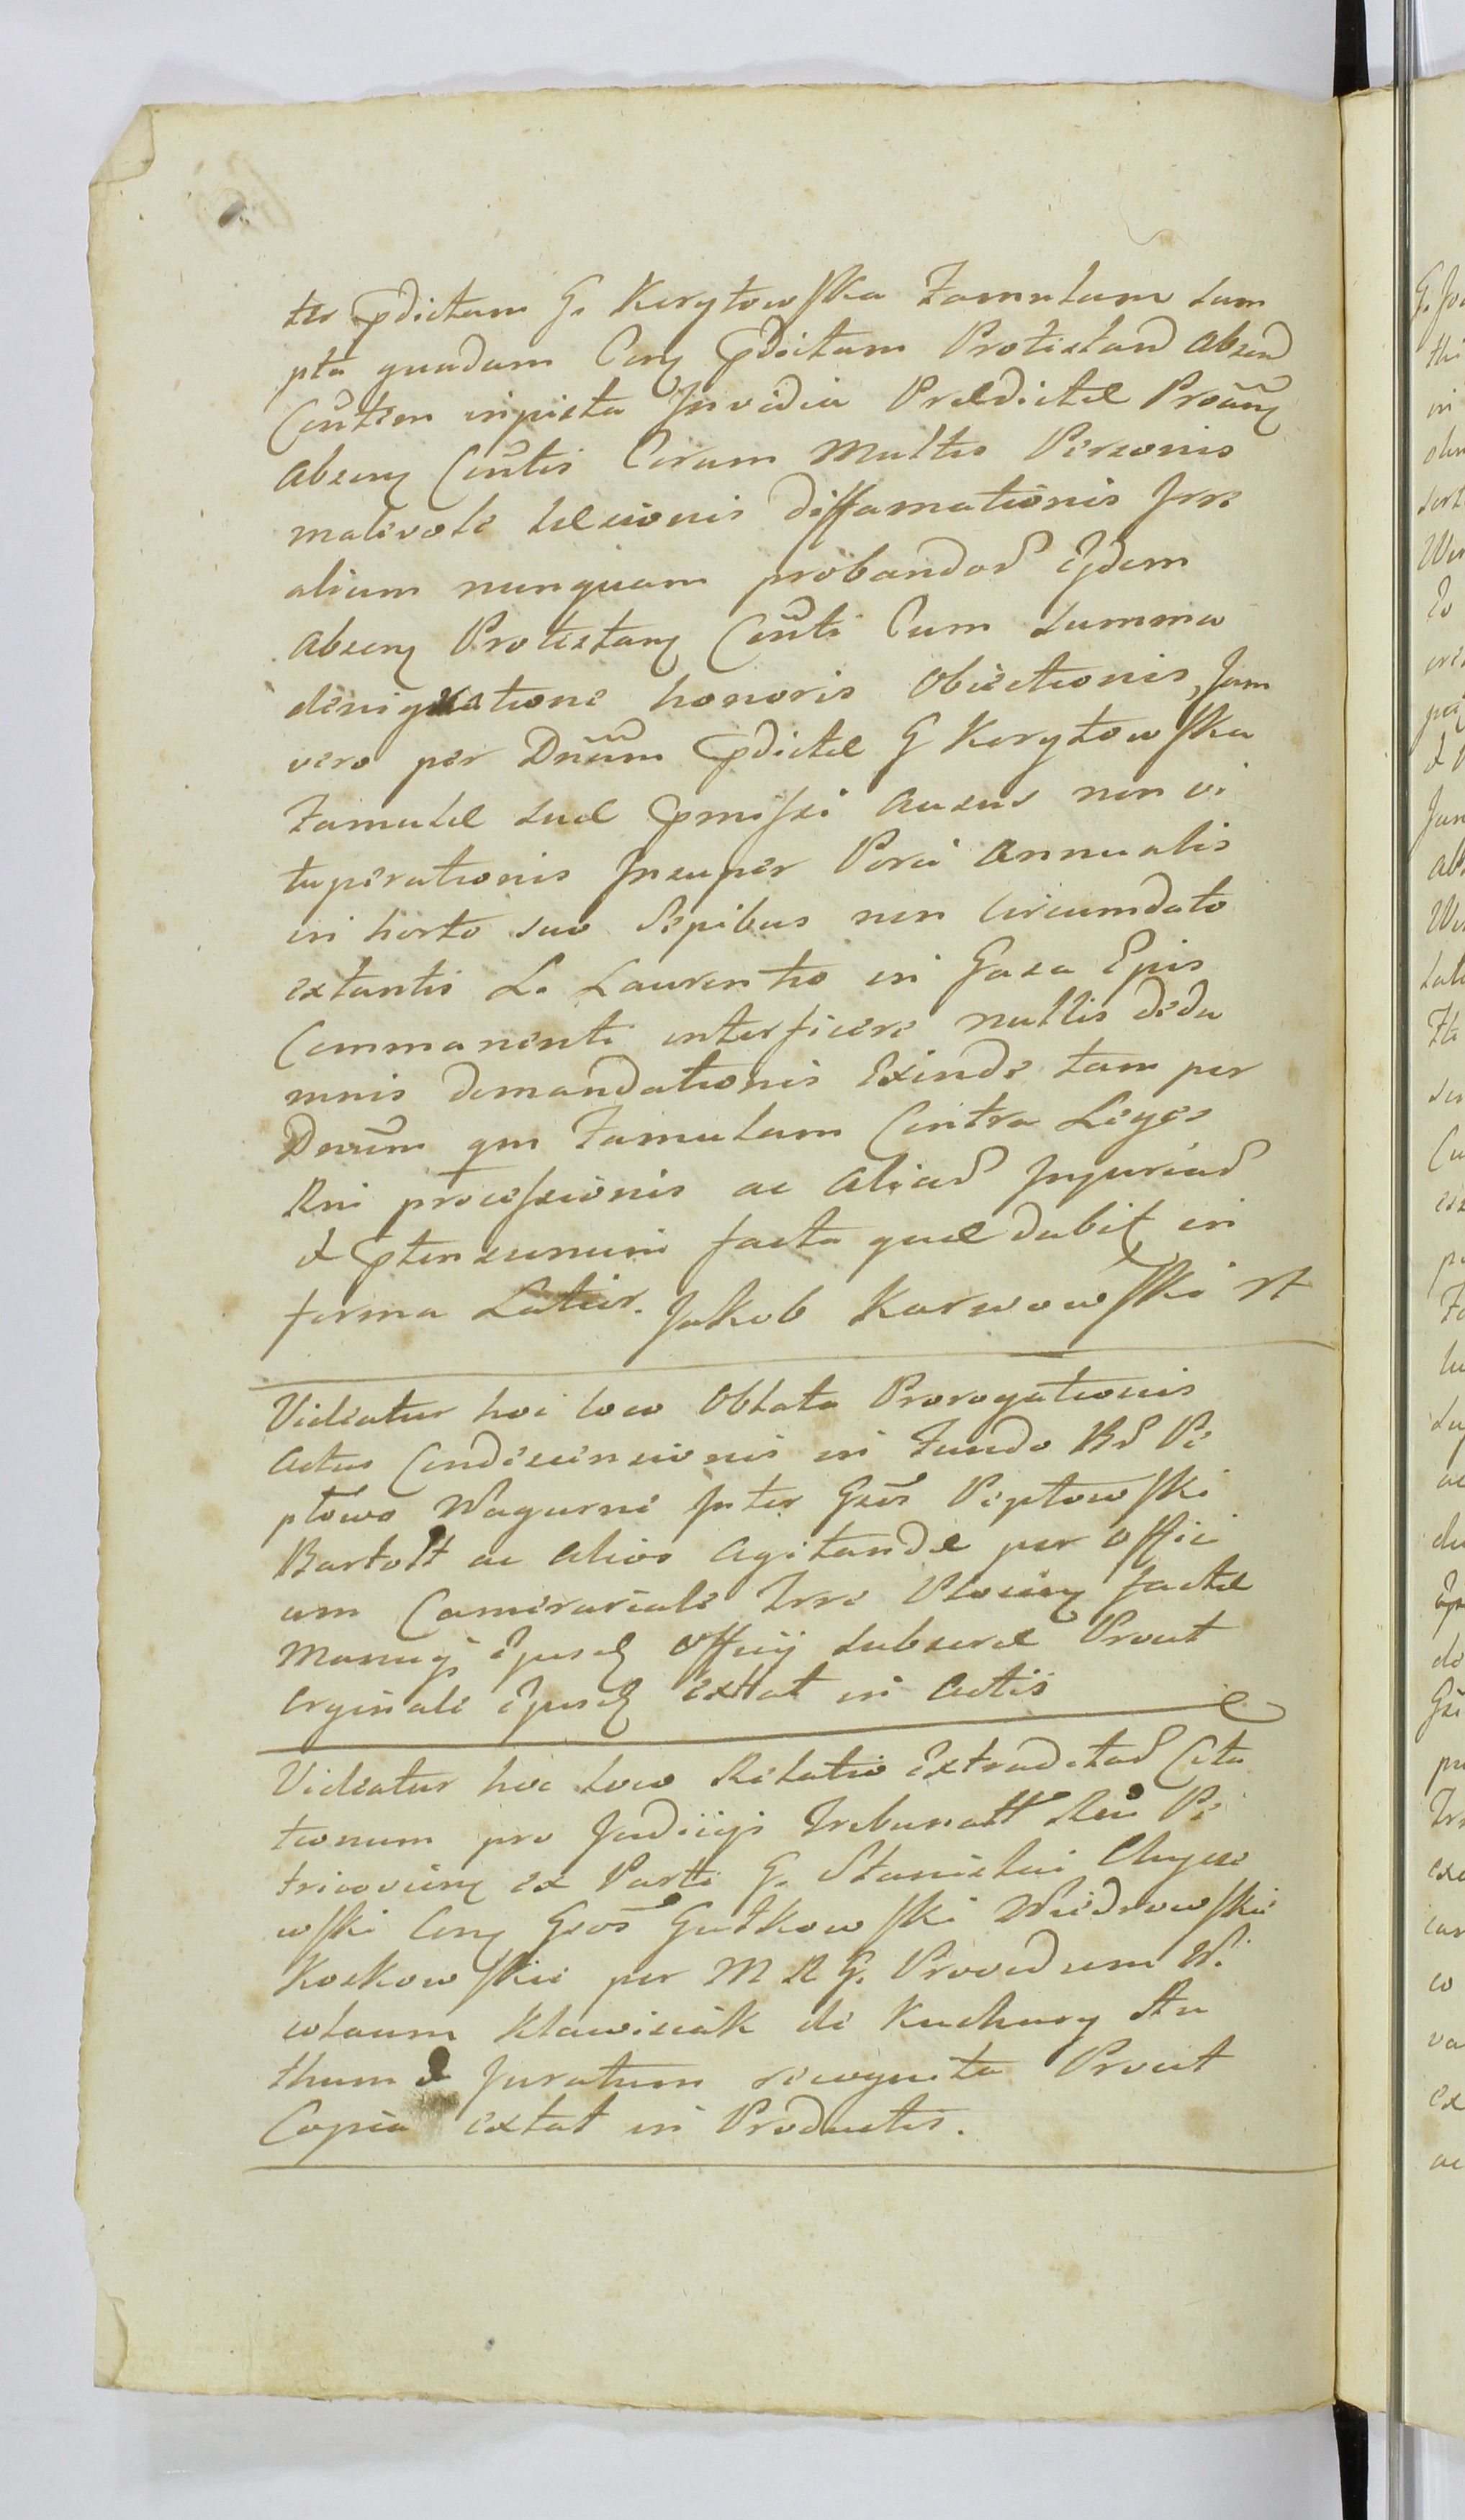 ter p̄dictam G. Korytowska Famulam sum
pta quadam Conq p̄dictam Protestand Absend
Con̄tem injusta Invidia Prædictæ Proān̄q
Absenq Con̄tis Coram Multis Personis
malevole læsionis diffamationis Irre
alium nunquam probandas Eidem
Absenq Protestanq Con̄ti Cum Summa
denigratione honoris Obiectionis, Jam
vero per Dn̄um p̄dictæ G Korytowska
Famulæ suæ p̄missi Ausus non vi
tuperationis Insuper Porci Annualis
in horto suo Sepibus non Circumdato
extantis L. Laurentio in Gaza Epis
Commanenti interficere nullis de da
mnis demandationis Exinde tam per
Dn̄um qm Famulam Contra Leges
Rni processionis ac Alias Injurias
& p̄tensionum facta quæ dabit in
forma Latior. Jakob Karwowski mp
Videatur hoc loco Oblata Prorogationis
Actus Condescensionis in Fundo Bd Pe
płowo Wagurne Inter Gsos Pepłowski
Bartołt ac Alios Agitandæ per Offici
um Camerariale Trre Plocenq factæ
Manuq Ejusd Officij Subscræ Prout
Orginale Ejusd extat in Actis
Videatur hoc loco Relatio Extraditas Cita
tionum pro Judicijs Tribunall Rni Pe
tricovienq ex Parte G. Stanislai Chyczo
wski Conq Gsos Gutkowski Niedrowskie
Koskowskie per M R G. Providum Ni
colaum Kławisiak de Kuchary Au
thum & Juratum recognita Prout
Copia extat in Productis.